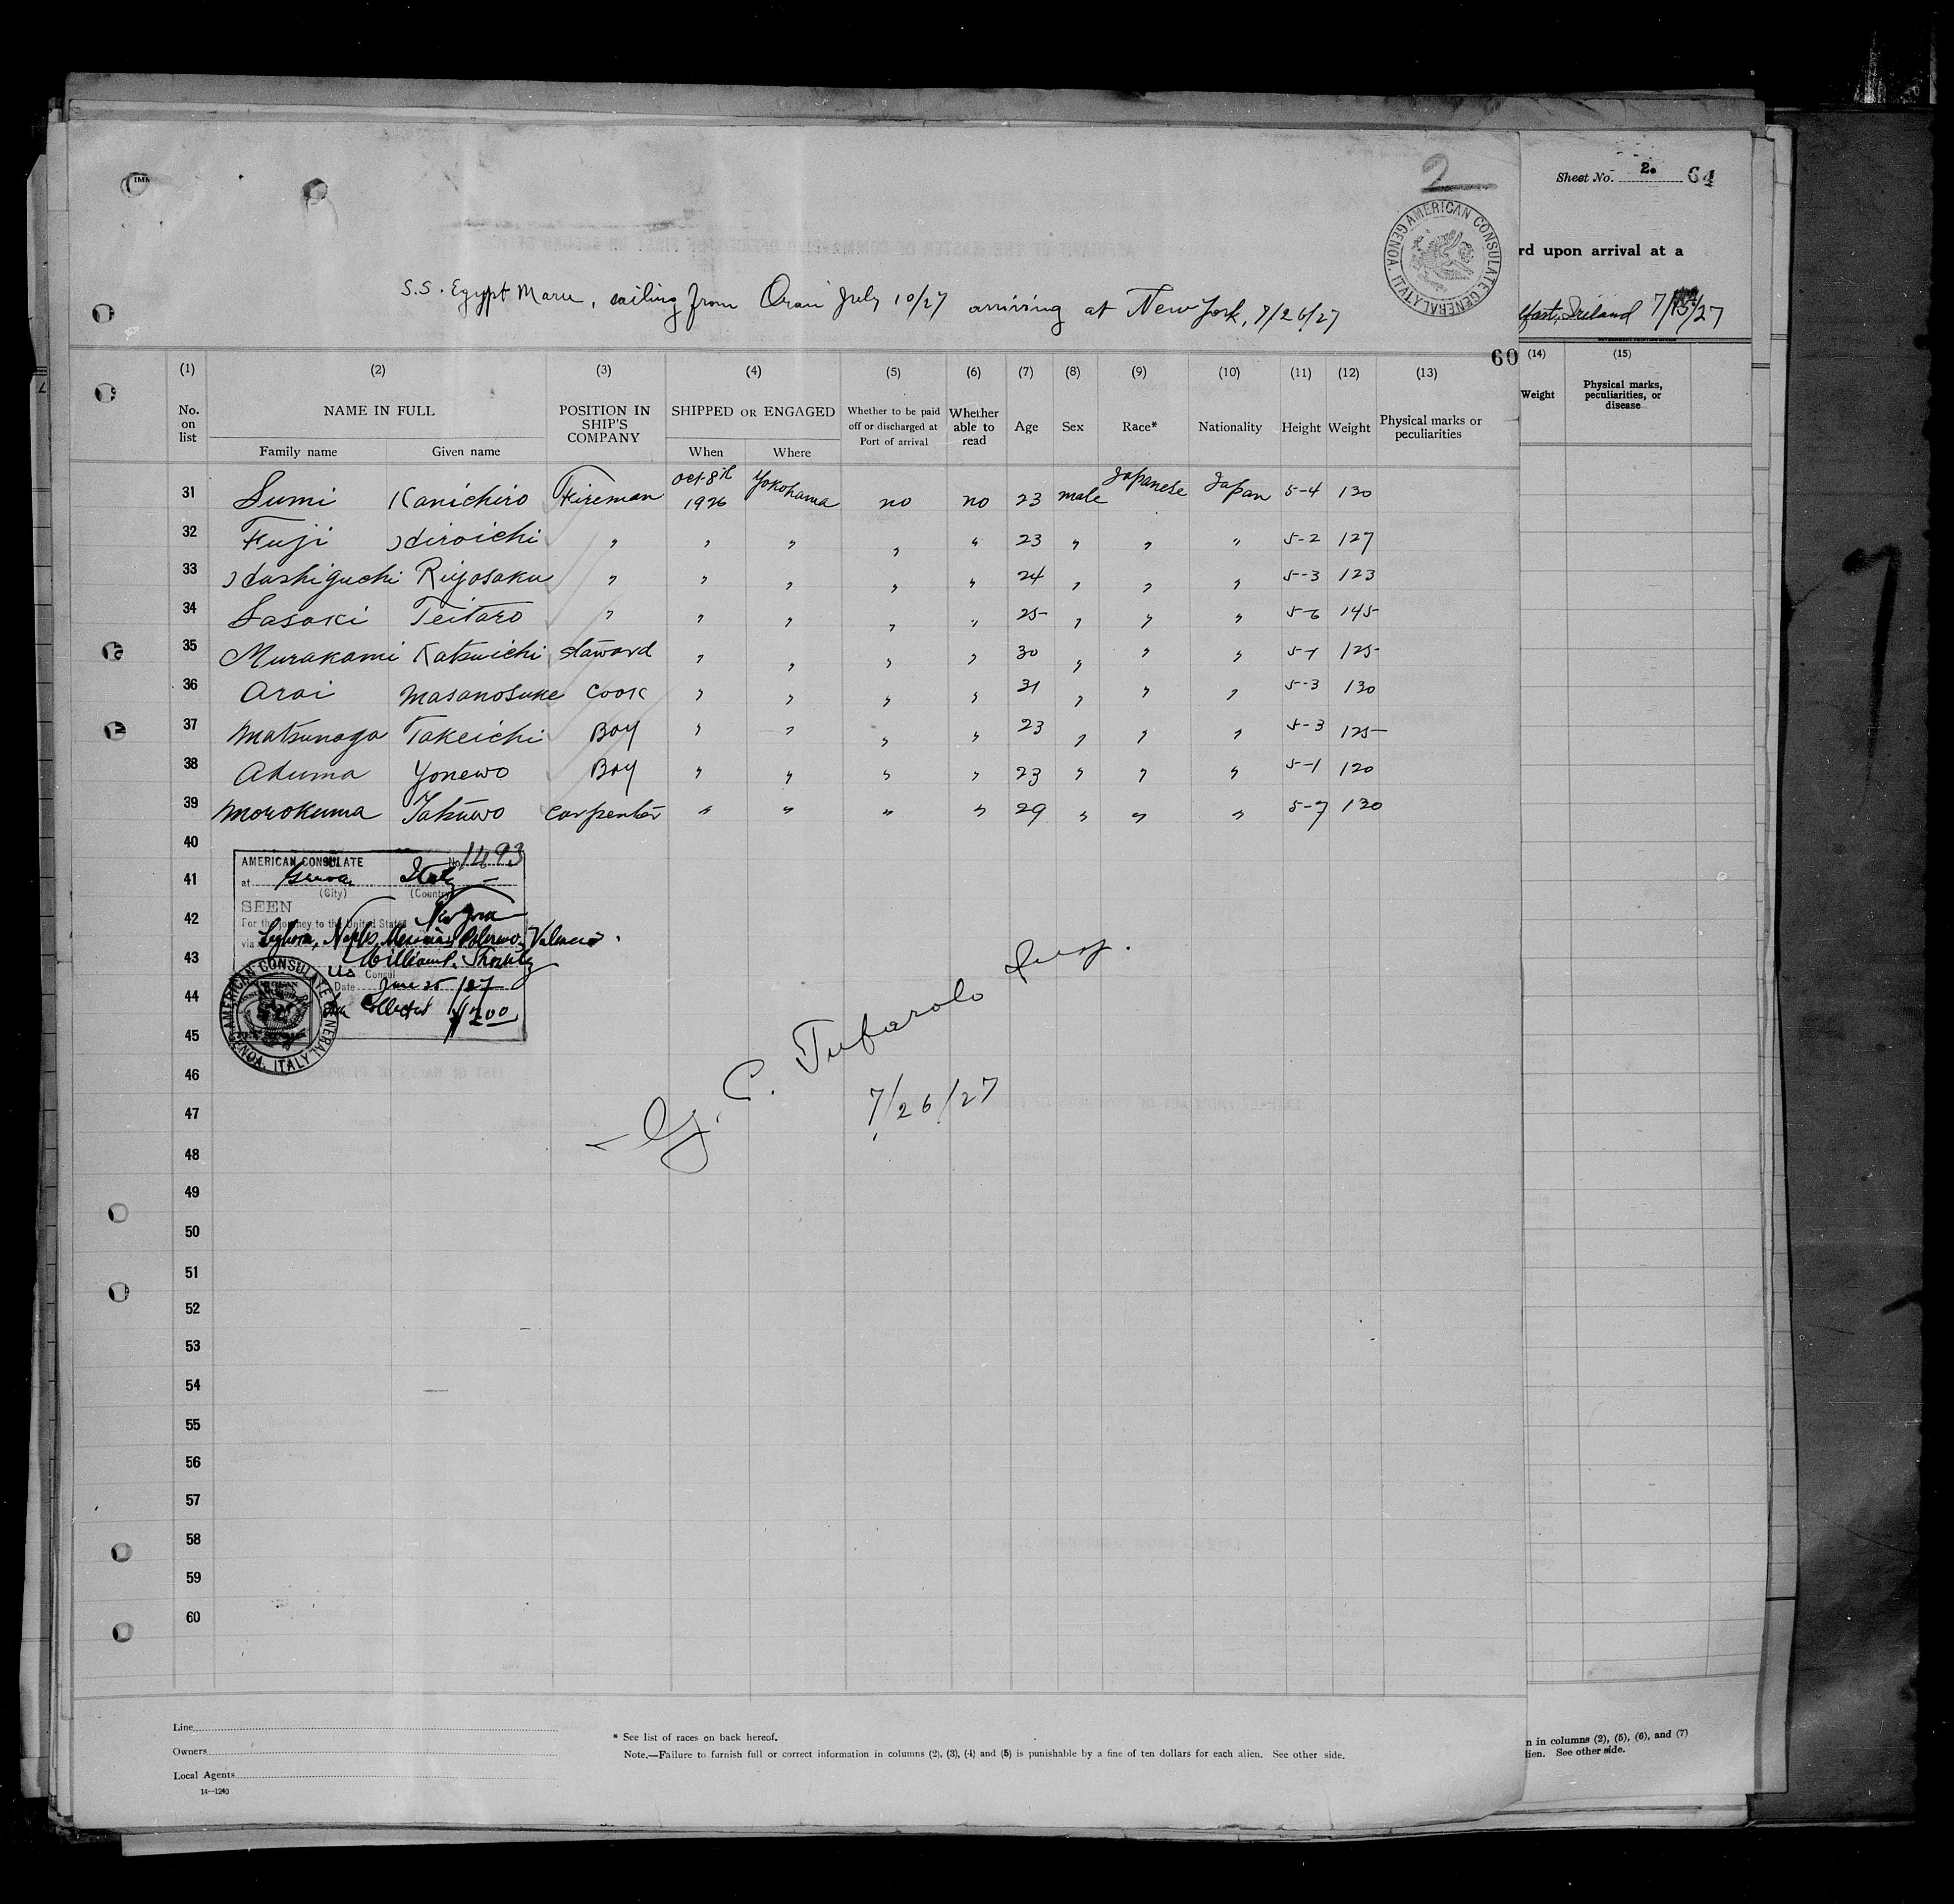 2
Sheet No. 2. 64
AMERICAN CONSULATE GENERAL GENOA, ITALY
rd upon arrival at a
S.S. Egypt Maru, sailing from Oran July 10/27 arriving at New York, 7/26/27
lfast, Ireland 7/13/27
60
(1) (2) (3) (4) (5) (6) (7) (8) (9) (10) (11) (12) (13) (14) (15)
No. on list NAME IN FULL POSITION IN SHIP'S COMPANY SHIPPED OR ENGAGED Whether to be paid off or discharged at Port of arrival Whether able to read Age Sex Race* Nationality Height Weight Physical marks or peculiarities Weight Physical marks, peculiarities, or disease
Family name Given name When Where
31 Sumi Kanichiro Fireman Oct-8th 1926 Yokohama no no 23 male Japanese Japan 5-4 130
32 Fuji Hiroichi " " " " " 23 " " " 5-2 127
33 Hashiguchi Riyosaku " " " " " 24 " " " 5-3 123
34 Sasaki Teitaro " " " " " 25 " " " 5-6 145
35 Murakami Katsuichi staward " " " " 30 " " " 5-1 125
36 Arai Masanosuke Cook " " " " 31 " " " 5-3 130
37 Matsunaga Takeichi Boy " " " " 23 " " " 5-3 125
38 Aduma Yonewo Boy " " " " 23 " " " 5-1 120
39 Morokuma Takuwo Carpenter " " " " 29 " " " 5-7 130
40
41
42
43
44
45
46
47
48
49
50
51
52
53
54
55
56
57
58
59
60
AMERICAN CONSULATE No. 1493
at Genoa Italy
(City) (Country)
SEEN
For the journey to the United States New York
via Leghorn, Naples, Messina, Palermo, Valencia.
William P.
US Consul
Date June 25/27
Fee Collected $2.00
AMERICAN CONSULATE GENERAL GENOA, ITALY
C. Tufarolo Insp.
7/26/27
Line
Owners
Local Agents
14—1240
* See list of races on back hereof.
Note.—Failure to furnish full or correct information in columns (2), (3), (4) and (5) is punishable by a fine of ten dollars for each alien. See other side.
n in columns (2), (5), (6), and (7)
lien. See other side.